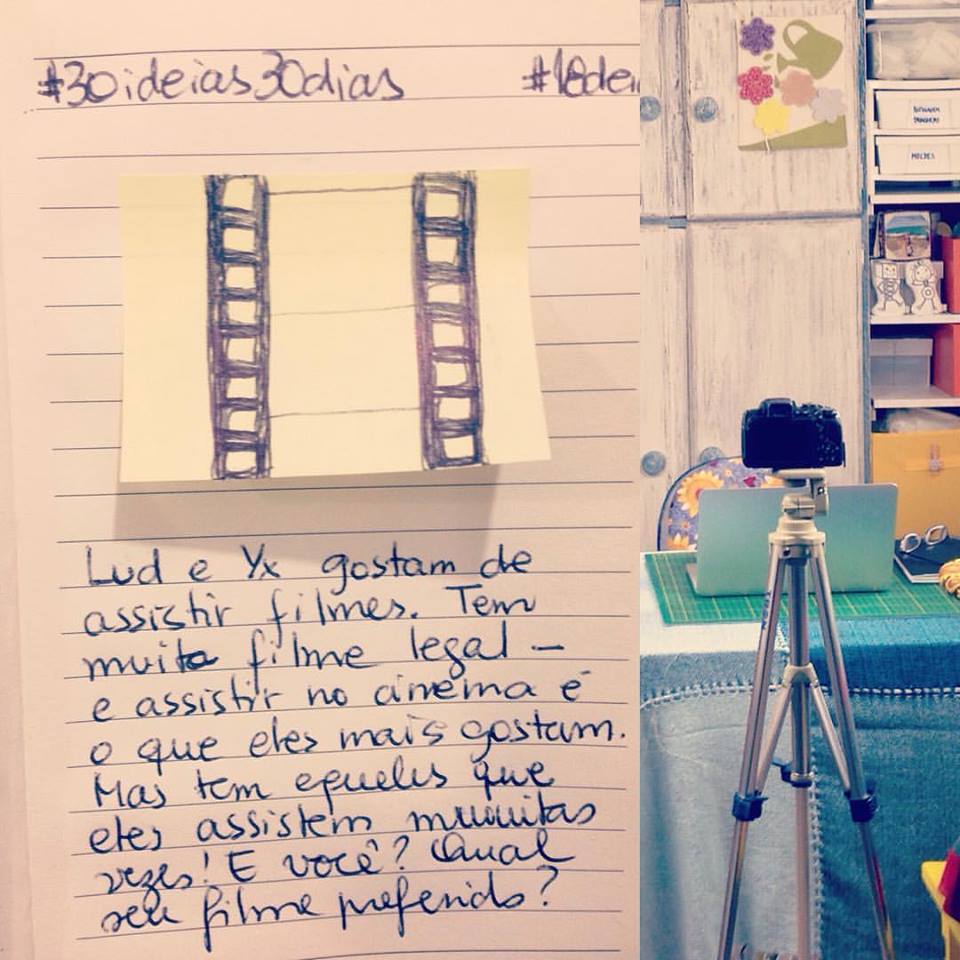 #30ideias30dias #18de
Lud e Yx gostam de
assistir filmes. Tem
muito filme legal –
e assistir no cinema é
o que eles mais gostam.
Mas tem aqueles que
eles assistem muuuitas
vezes! E você? Qual
seu filme preferido?
MOLDES